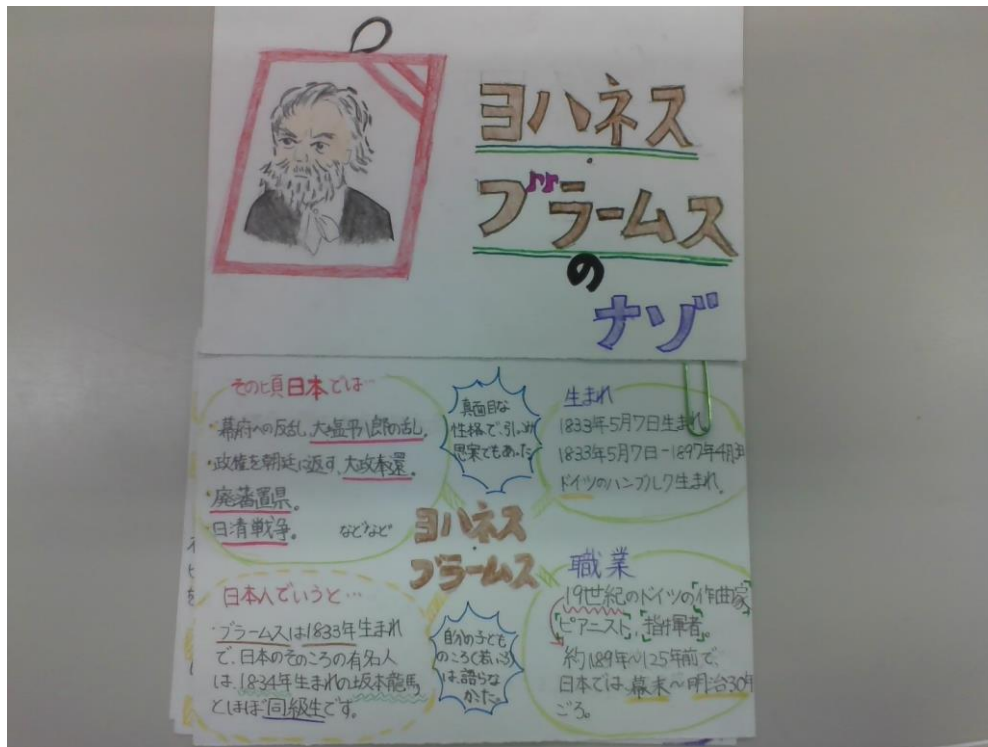 ヨハネス
・
ブラームス
の
ナゾ
その頃日本では…
・幕府への反乱、大塩平八郎の乱。
・政権を朝廷に返す、大政奉還。
・廃藩置県。
・日清戦争。 などなど
真面目な
性格で、引っ込み
思案でもあった
生まれ
1833年5月7日生まれ
1833年5月7日-1897年4月3日
ドイツのハンブルク生まれ。
ヨハネス
・
ブラームス
日本人でいうと…
・ブラームスは1833年生まれ
で、日本のそのころの有名人
は、1834年生まれの坂本龍馬
とほぼ同級生です。
自分の子ども
のころ(若いころ)
は、語らな
かった。
職業
19世紀のドイツの「作曲家」
「ピアニスト」、「指揮者」
約189年〜125年前で、
日本では、幕末〜明治30年
ごろ。